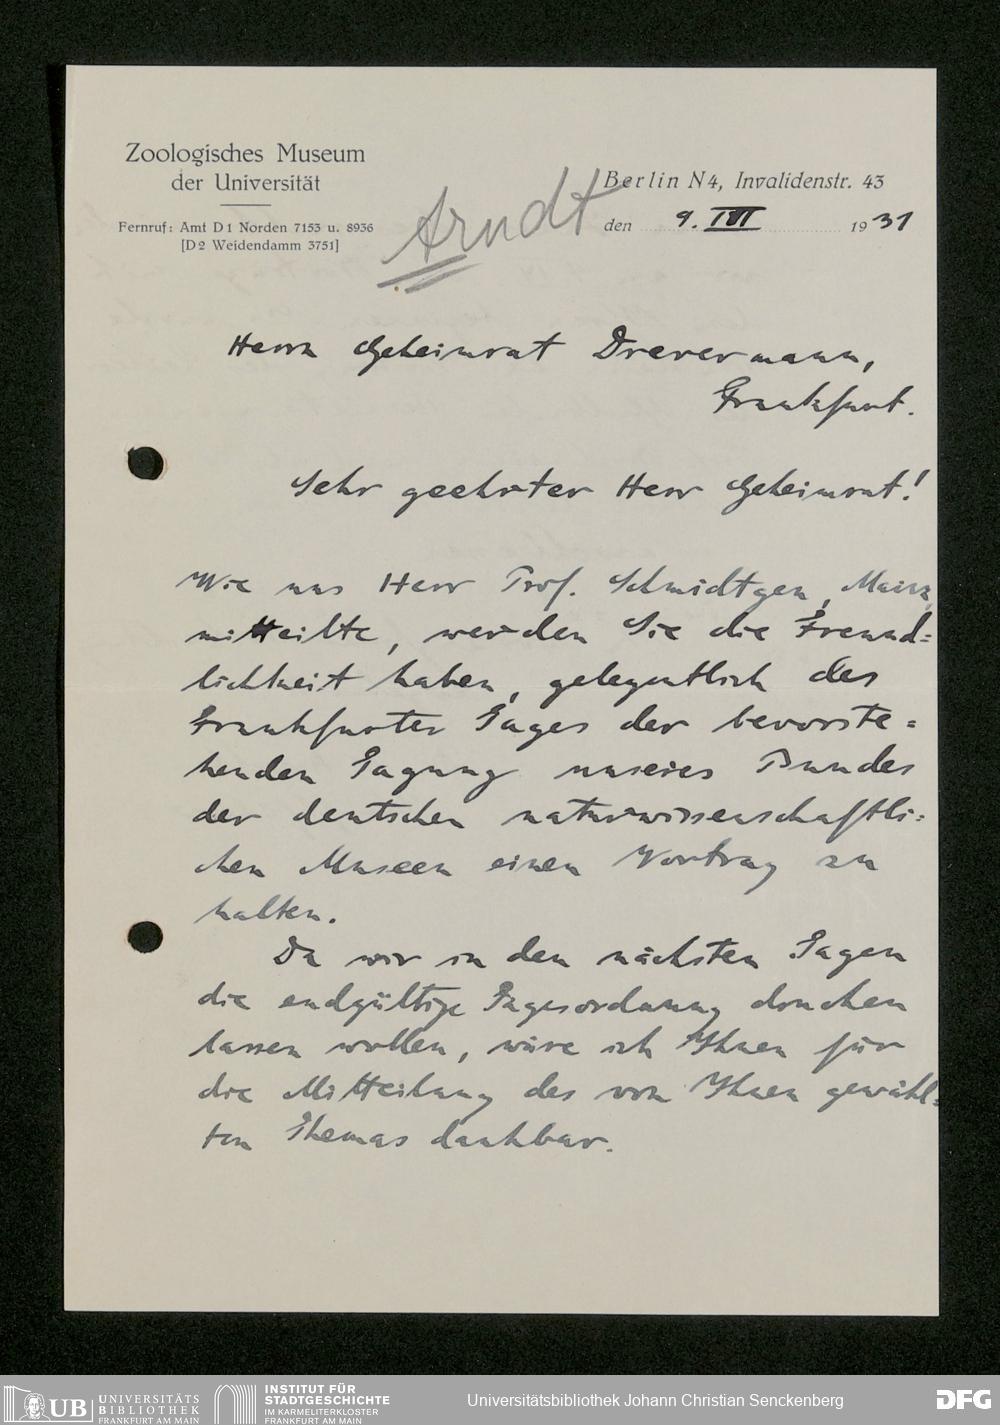 Zoologisches Museum
der Universität
Fernruf: Amt D1 Norden 7153 u. 8936
[D2 Weidendamm 3751]
Arndt
Berlin N4, Invalidenstr. 43
den 9. 1931
Herrn Geheimrat Drevermann,
Frankfurt.
Sehr geehrter Herr Geheimrat!
Wie uns Herr Prof. Schmidtgen, Mainz,
mitteilte, werden Sie die Freund=
lichkeit haben, gelegentlich des
Frankfurter Tages der bevorste=
henden Tagung unseres Bundes
der deutschen naturwissenschaftli=
chen Museen einen Vortrag zu
halten.
Da wir in den nächsten Tagen
die endgültige Tagesordnung drucken
lassen wollen, wäre ich Ihnen für
die Mitteilung des von Ihnen gewähl=
ten Themas dankbar.
UB UNIVERSITÄTS
BIBLIOTHEK
FRANKFURT AM MAIN
INSTITUT FÜR
STADTGESCHICHTE
IM KARMELITERKLOSTER
FRANKFURT AM MAIN
Universitätsbibliothek Johann Christian Senckenberg
DFG